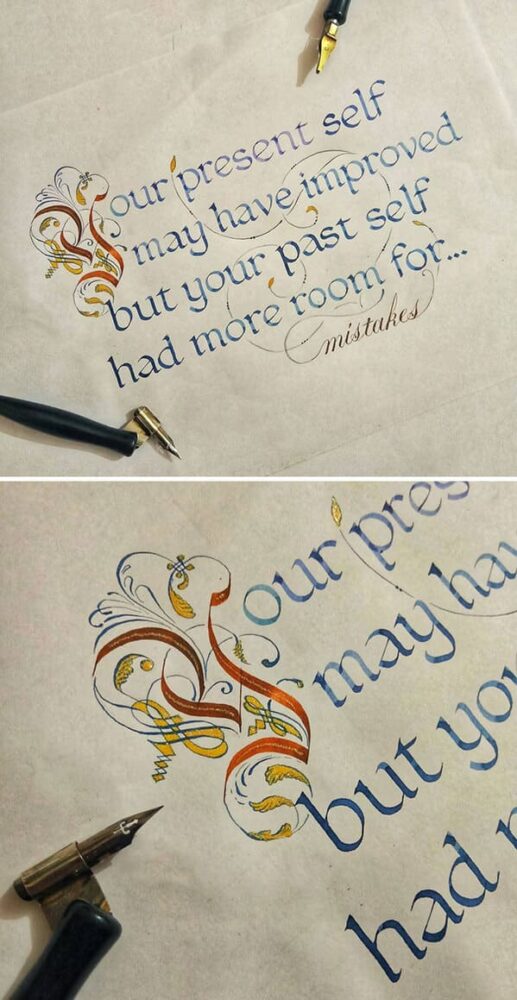 Your present self
may have improved
but your past self
had more room for...
mistakes
our pres
may hav
but you
had